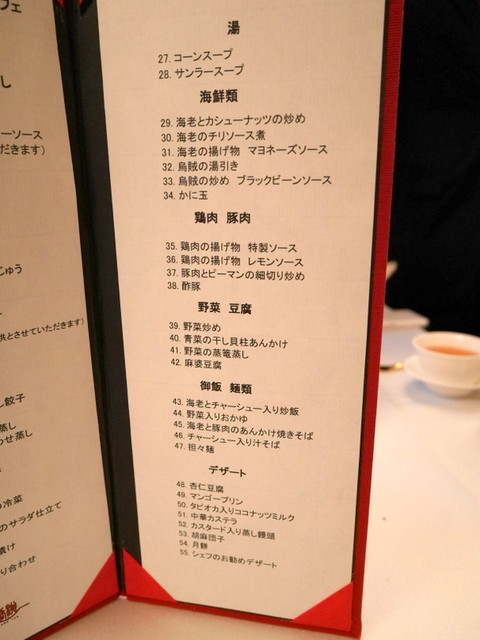 フェ
し
ーソース
だきます）
じゅう
供とさせていただきます）
し餃子
蒸し
わせ蒸し
の冷菜
のサラダ仕立て
漬け
り合わせ
湯
27. コーンスープ
28. サンラースープ
海鮮類
29. 海老とカシューナッツの炒め
30. 海老のチリソース煮
31. 海老の揚げ物 マヨネーズソース
32. 烏賊の湯引き
33. 烏賊の炒め ブラックビーンソース
34. かに玉
鶏肉 豚肉
35. 鶏肉の揚げ物 特製ソース
36. 鶏肉の揚げ物 レモンソース
37. 豚肉とピーマンの細切り炒め
38. 酢豚
野菜 豆腐
39. 野菜炒め
40. 青菜の干し貝柱あんかけ
41. 野菜の蒸篭蒸し
42. 麻婆豆腐
御飯 麺類
43. 海老とチャーシュー入り炒飯
44. 野菜入りおかゆ
45. 海老と豚肉のあんかけ焼きそば
46. チャーシュー入り汁そば
47. 担々麺
デザート
48. 杏仁豆腐
49. マンゴープリン
50. タピオカ入りココナッツミルク
51. 中華カステラ
52. カスタード入り蒸し饅頭
53. 胡麻団子
54. 月餅
55. シェフのお勧めデザート